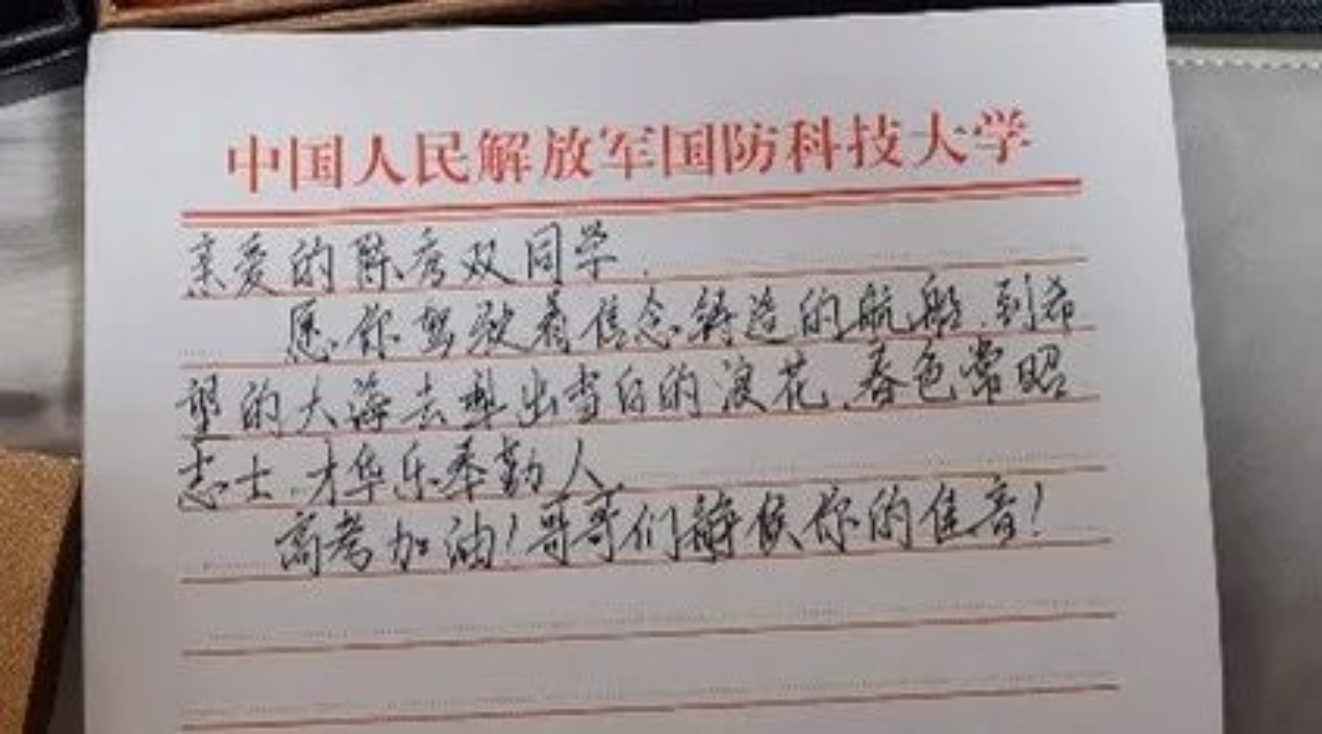 中国人民解放军国防科技大学
亲爱的陈秀双同学.
愿你驾驶着信念铸造的航船.到希
望的大海去犁出雪白的浪花.春色常昭
志士.才华乐奉勤人.
高考加油!哥哥们静候你的佳音!